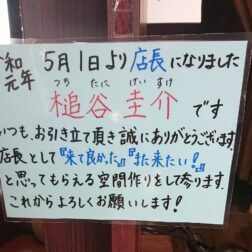 令和元年 5月1日より店長になりました
つち たに けい すけ
槌谷 圭介 です
いつも、お引き立て頂き誠にありがとうございます。
店長として『来て良かった』『また来たい!』
と思ってもらえる空間作りをして参ります。
これからよろしくお願いします!